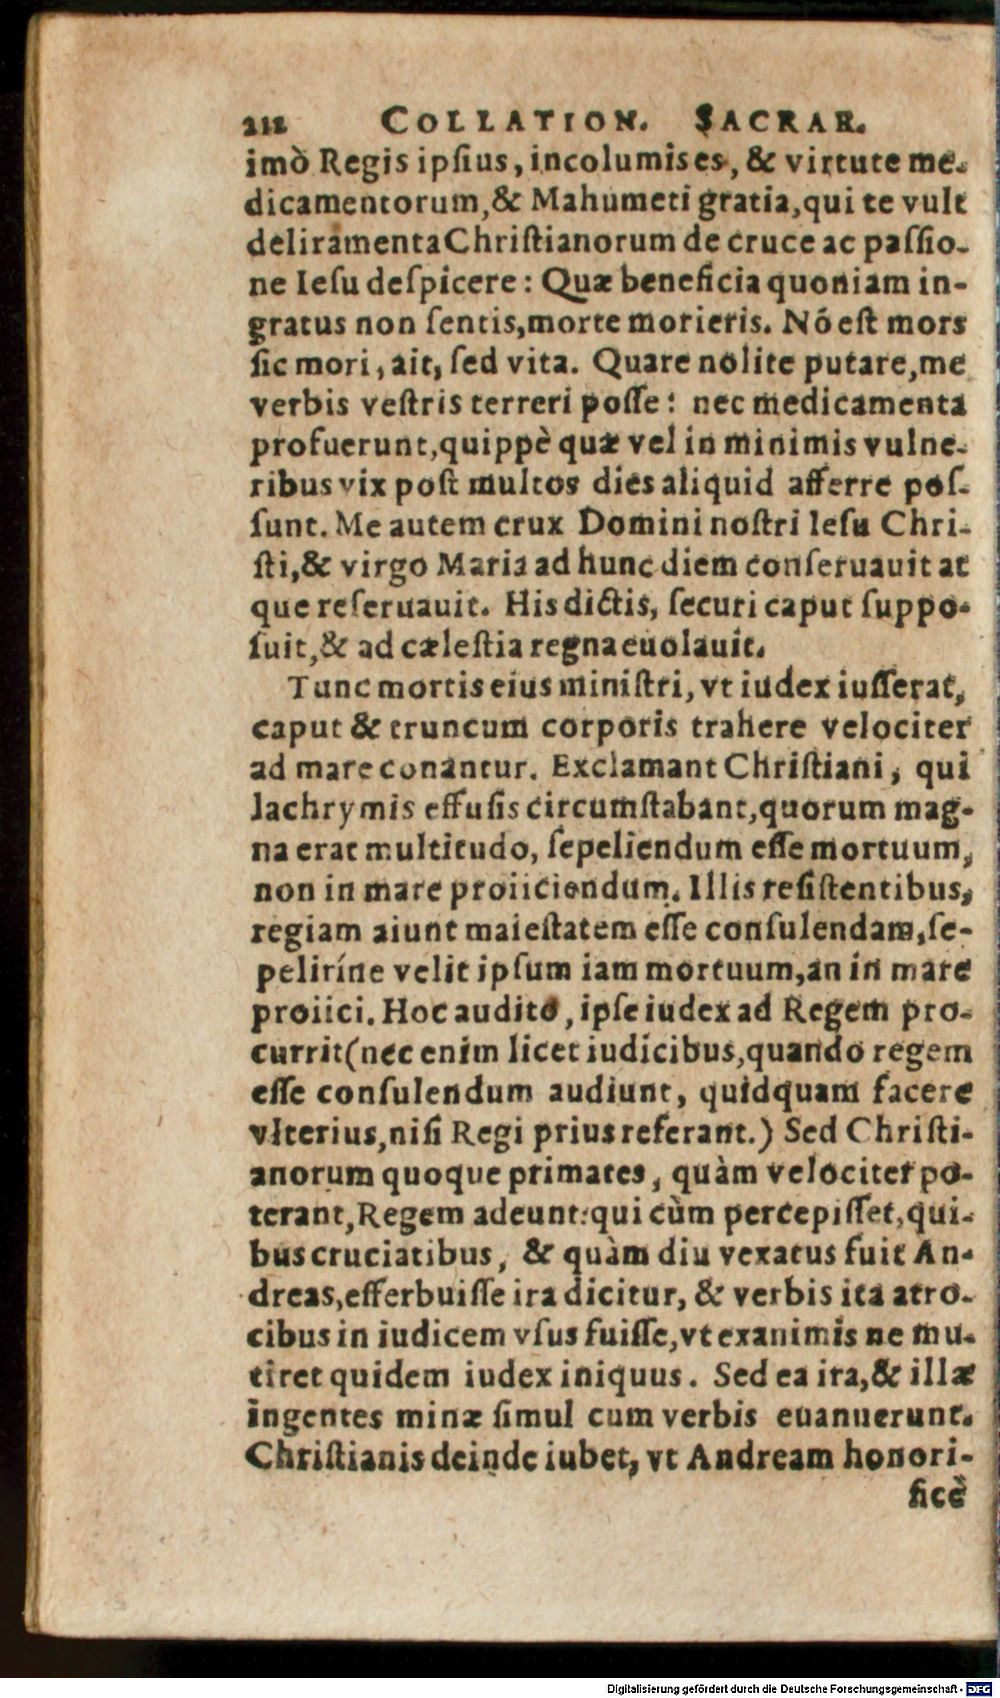 212 COLLATION. SACRAR.
imò Regis ipſius, incolumis es, & virtute me-
dicamentorum, & Mahumeti gratia, qui te vult
deliramenta Chriſtianorum de cruce ac paſſio-
ne Ieſu deſpicere: Quæ beneficia quoniam in-
gratus non ſentis, morte morieris. Nō eſt mors
ſic mori, ait, ſed vita. Quare nolite putare, me
verbis veſtris terreri poſſe: nec medicamenta
profuerunt, quippè quæ vel in minimis vulne-
ribus vix poſt multos dies aliquid afferre poſ-
ſunt. Me autem crux Domini noſtri Ieſu Chri-
ſti, & virgo Maria ad hunc diem conſeruauit at
que reſeruauit. His dictis, ſecuri caput ſuppo-
ſuit, & ad cæleſtia regna euolauit.
Tunc mortis eius miniſtri, vt iudex iuſſerat,
caput & truncum corporis trahere velociter
ad mare conantur. Exclamant Chriſtiani, qui
lachrymis effuſis circumſtabant, quorum mag-
na erat multitudo, ſepeliendum eſſe mortuum,
non in mare proiiciendum. Illis reſiſtentibus,
regiam aiunt maieſtatem eſſe conſulendam, ſe-
peliríne velit ipſum iam mortuum, an in mare
proiici. Hoc audito, ipſe iudex ad Regem pro-
currit (nec enim licet iudicibus, quando regem
eſſe conſulendum audiunt, quidquam facere
vlterius, niſi Regi prius referant.) Sed Chriſti-
anorum quoque primates, quàm velociter po-
terant, Regem adeunt: qui cùm percepiſſet, qui-
bus cruciatibus, & quàm diu vexatus fuit An-
dreas, efferbuiſſe ira dicitur, & verbis ita atro-
cibus in iudicem vſus fuiſſe, vt exanimis ne mu-
tiret quidem iudex iniquus. Sed ea ira, & illæ
ingentes minæ ſimul cum verbis euanuerunt.
Chriſtianis deinde iubet, vt Andream honori-
ficè
Digitalisierung gefördert durch die Deutsche Forschungsgemeinschaft - DFG